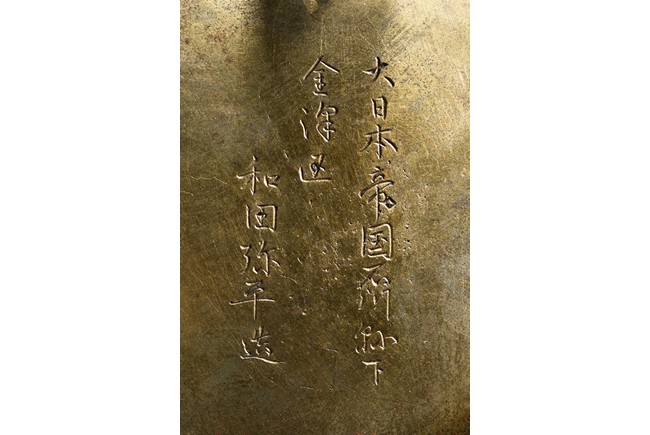 大日本帝国石川縣下
金澤區
和田弥平造